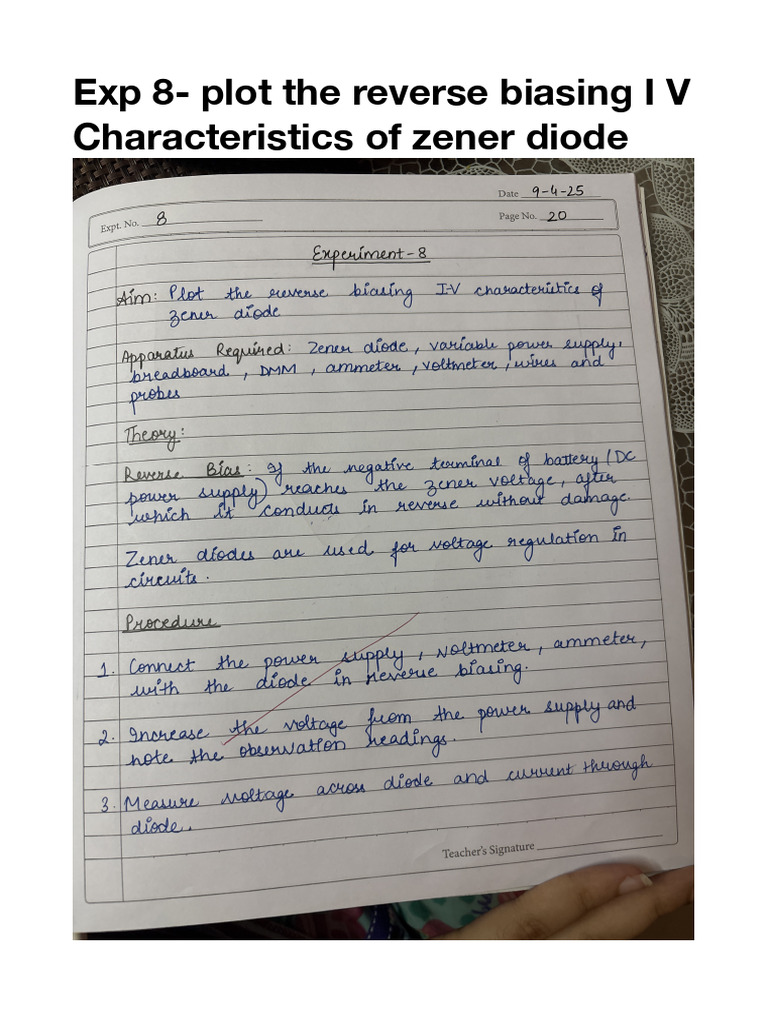 Exp 8- plot the reverse biasing I V
Characteristics of zener diode
Date 9-4-25
Expt. No. 8
Page No. 20
Experiment-8
Aim: Plot the reverse biasing I-V characteristics of
zener diode
Apparatus Required: Zener diode, variable power supply,
breadboard, DMM, ammeter, voltmeter, wires and
probes
Theory:
Reverse Bias: If the negative terminal of battery (DC
power supply) reaches the zener voltage, after
which it conducts in reverse without damage.
Zener diodes are used for voltage regulation in
circuits.
Procedure
1. Connect the power supply, voltmeter, ammeter,
with the diode in reverse biasing.
2. Increase the voltage from the power supply and
note the observation readings.
3. Measure voltage across diode and current through
diode.
Teacher's Signature